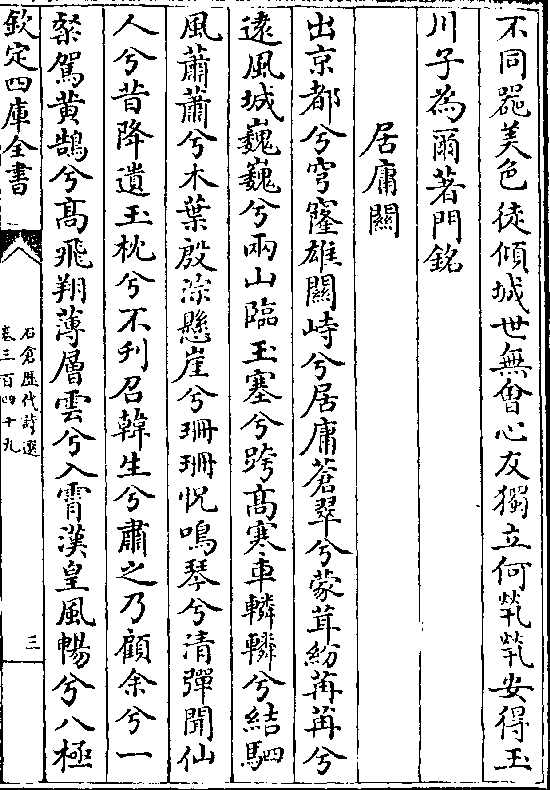 不同罷美色徒傾城世無會心友獨立何煢煢安得玉
川子為爾著門銘
居庸關
出京都兮穹窿雄關峙兮居庸蒼翠兮蒙茸紛苒苒兮
逺風城巍巍兮兩山臨玉塞兮跨髙寒車轔轔兮結駟
風蕭蕭兮木葉殷淙懸崖兮珊珊怳鳴琴兮清彈聞仙
人兮昔降遺玉枕兮不刋召韓生兮肅之乃顧余兮一
粲駕黄鵠兮髙飛翔薄層雲兮入霄漢皇風暢兮八極
欽定四庫全書
石倉歴代詩選
卷三百四十九
三